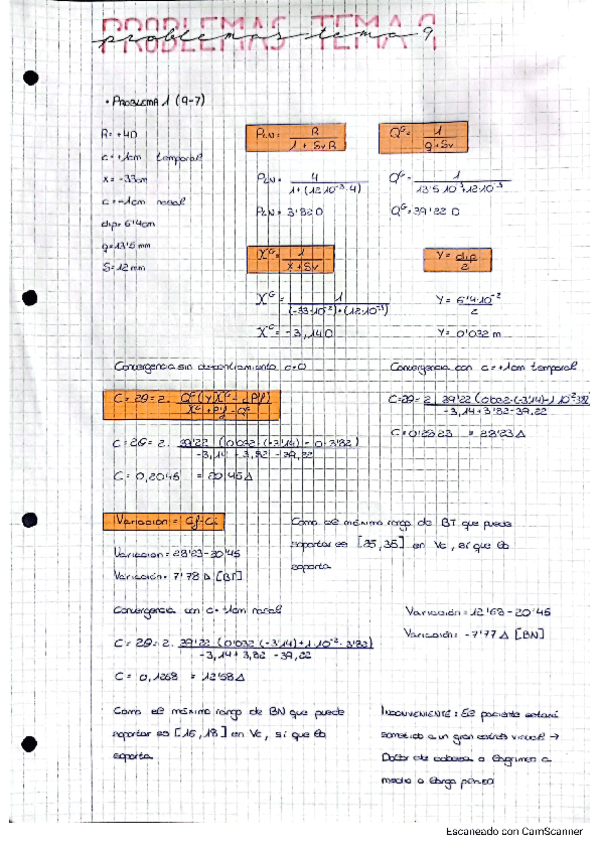 PROBLEMAS TEMA 9
problemas tema 9
• PROBLEMA 1 (9-7)
R= +4D
c= +1cm temporal
x= -33cm
c= -1cm nasal
dip= 6'4cm
q= 13'5 mm
S= 12mm
PLN= R / 1 + SvR
PLN= 4 / 1+(12·10⁻³·4)
PLN= 3'82 D
Qᴳ= 1 / q+Sv
Qᴳ= 1 / 13'5·10⁻³+12·10⁻³
Qᴳ= 39'22 D
Xᴳ= 1 / x+Sv
Xᴳ= 1 / (-33·10⁻²)+(12·10⁻³)
Xᴳ= -3,14D
Y= dip / 2
Y= 6'4·10⁻² / 2
Y= 0'032 m
Convergencia sin descentramiento c=0
C= 2θ= 2· Qᴳ(YXᴳ - cPlf) / Xᴳ+Plf-Qᴳ
C= 2θ= 2· 39'22 (0'032·(-3'14) - 0·3'82) / -3,14 + 3,82 - 39,22
C= 0,2045 = 20'45Δ
Convergencia con c= +1cm temporal
C=2θ= 2· 39'22 (0'032·(-3'14)-1·10⁻²·3'82) / -3,14+3'82-39,22
C= 0'2823 = 28'23Δ
Variación = Cf-Ci
Variación= 28'23-20'45
Variación= 7'78 Δ [BT]
Como el máximo rango de BT que puede
soportar es [25,35] en Vc, sí que lo
soporta
Convergencia con c= -1cm nasal
C= 2θ= 2· 39'22 (0'032·(-3'14)+1·10⁻²·3'82) / -3,14+3,82-39,22
C= 0,1268 = 12'68Δ
Variación=12'68-20'45
Variación= -7'77 Δ [BN]
Como el máximo rango de BN que puede
soportar es [15,18] en Vc, sí que lo
soporta.
INCONVENIENTE: El paciente estará
sometido a un gran estrés visual →
Dolor de cabeza o lágrimeo a
medio o largo plazo
Escaneado con CamScanner